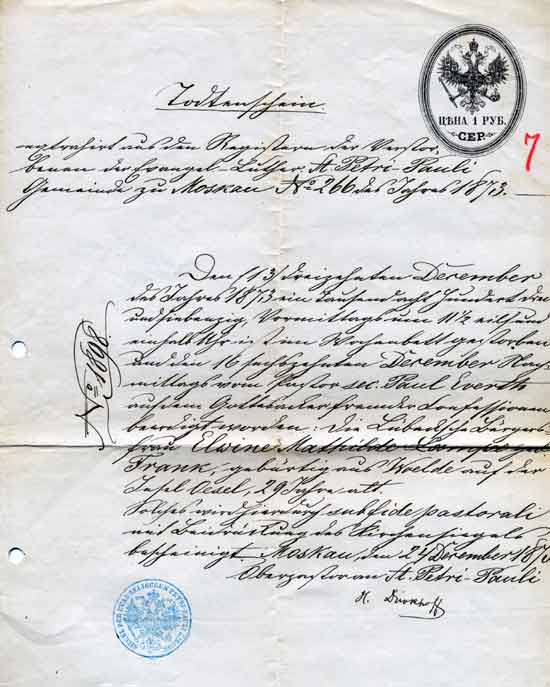 ЦѢНА 1 РУБ.
СЕР.
7
Todtenschein
extrahirt aus den Registern der Verstor-
benen der Evangel-Luther. St. Petri-Pauli
Gemeinde zu Moskau No 266 des Jahres 1873.
Den (13) dreizehnten December
des Jahres 1873 ein tausend acht hundert drei
und siebenzig, Vormittags um 11½ eilf und
einhalb Uhr ist im Wochenbett gestorben
und den 16 sechszehnten December Nach-
mittags vom Pastor sec. Paul Everth
auf dem Gottesacker fremder Confessionen
beerdigt worden: Die Lübecksche Bürgers-
frau Elwine Mathilde geb.
Frank, gebürtig aus Woelde auf der
Insel Oesel, 29 Jahre alt.
Solches wird hierdurch sub fide pastorali
mit Beidrückung des Kirchensiegels
bescheinigt. Moskau, den 21 December 1873
Oberpastor an St. Petri-Pauli
No 1898.